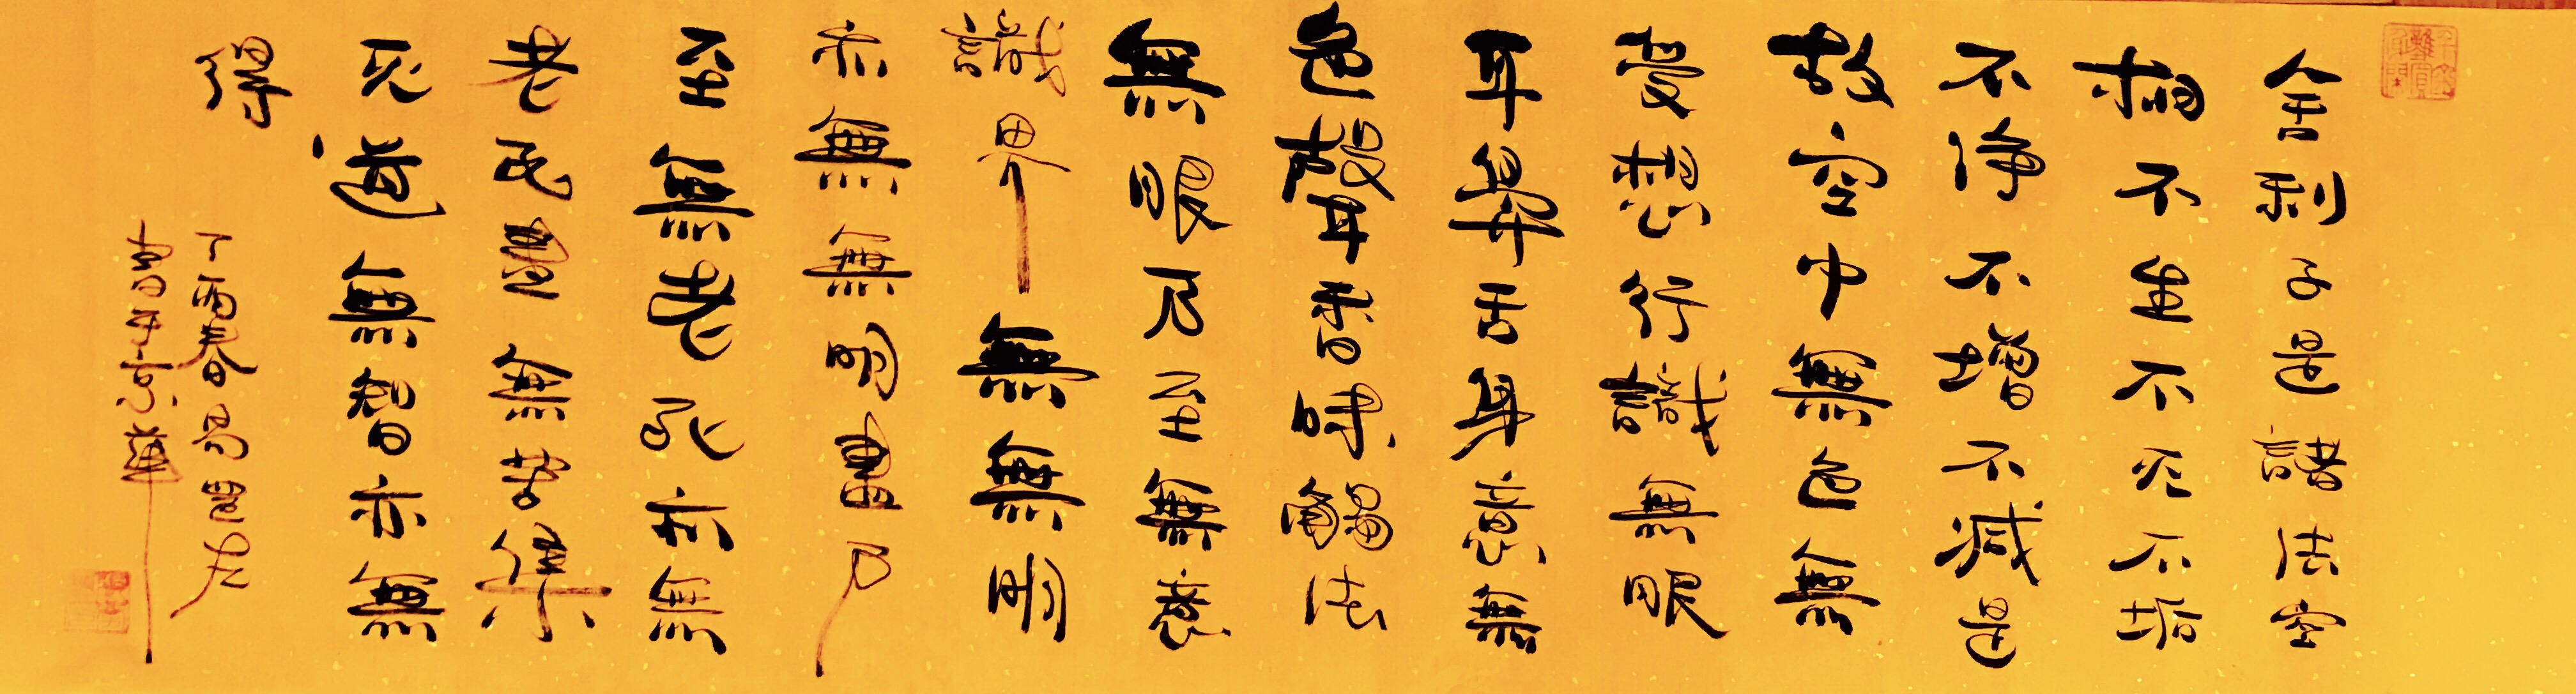 舍利子是諸法空
相不生不灭不垢
不净不增不減是
故空中無色無
受想行識無眼
耳鼻舌身意無
色聲香味觸法
無眼乃至無意
識界無無明
亦無無明盡乃
至無老死亦無
老死盡無苦集
灭道無智亦無
得
丁酉春易
書于京華